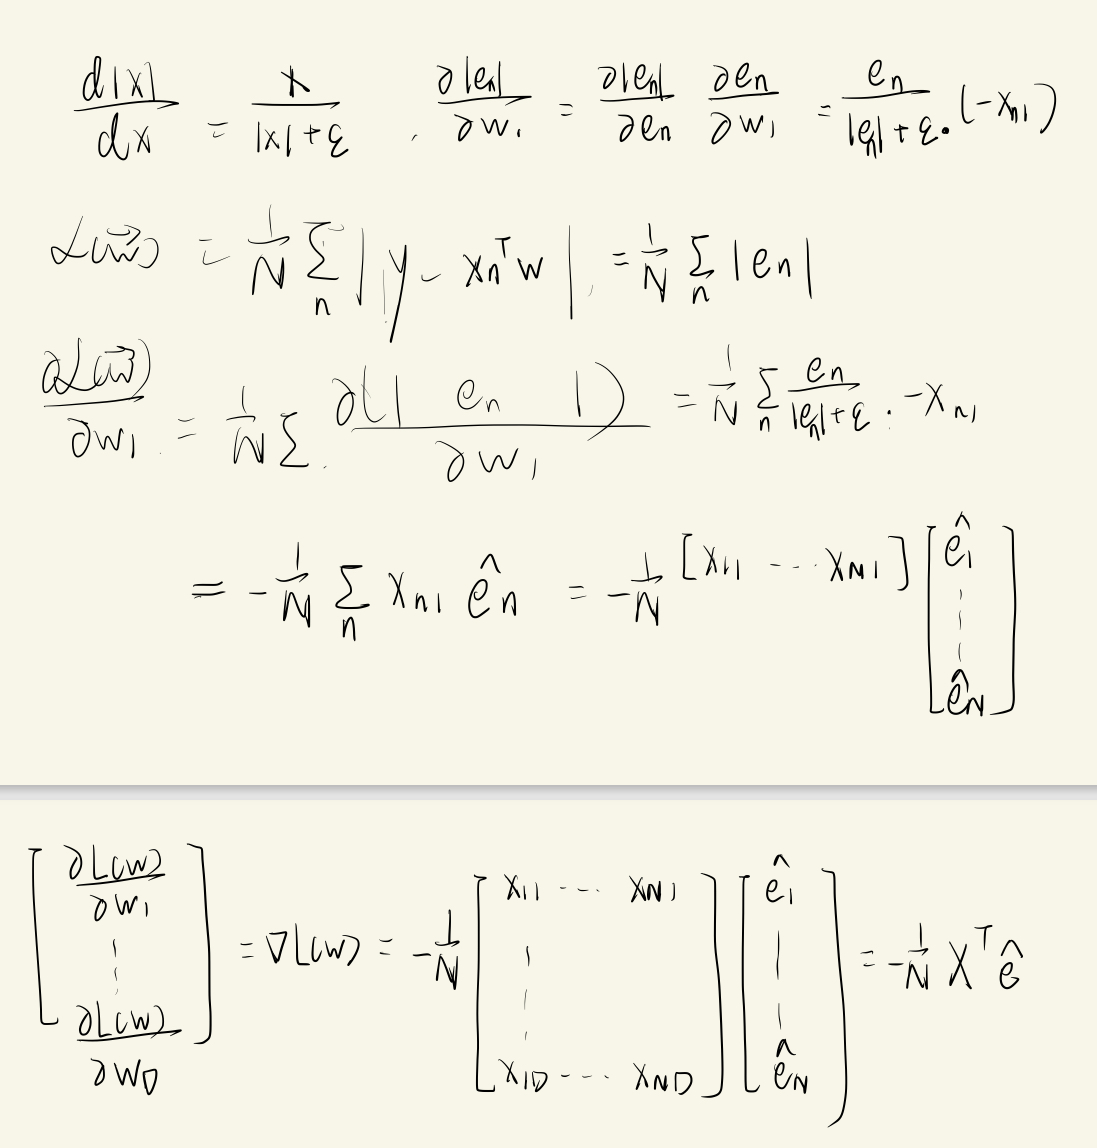 d|x|/dx = x/(|x|+ε) , ∂|en|/∂w1 = ∂|en|/∂en ∂en/∂w1 = en/(|en|+ε) · (-xn1)
L(w⃗) = 1/N Σn | y - xnᵀw | = 1/N Σn |en|
∂L(w⃗)/∂w1 = 1/N Σ ∂(| en |)/∂w1 = 1/N Σn en/(|en|+ε) · -xn1
= -1/N Σn xn1 ên = -1/N [x11 --- xN1] [ê1 ⋮ êN]
[∂L(w)/∂w1 ⋮ ∂L(w)/∂wD] = ∇L(w) = -1/N [x11 --- xN1 ⋮ x1D --- xND] [ê1 ⋮ êN] = -1/N Xᵀ ê